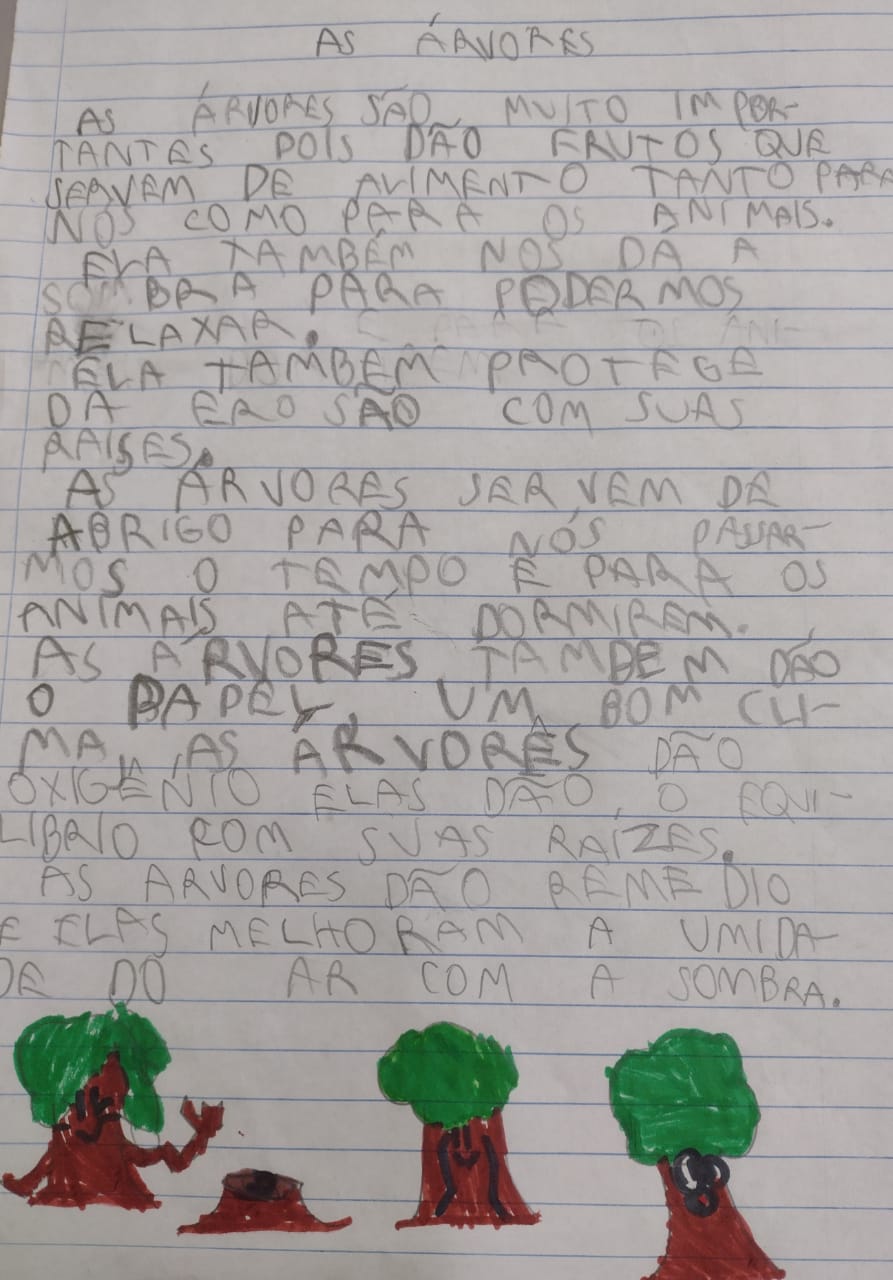 AS ÁRVORES
AS ÁRVORES SÃO MUITO IMPOR-
TANTES POIS DÃO FRUTOS QUE
SERVEM DE ALIMENTO TANTO PARA
NÓS COMO PARA OS ANIMAIS.
ELA TAMBÉM NOS DA A
SOMBRA PARA PODERMOS
RELAXAR.
ELA TAMBÉM PROTEGE
DA EROSÃO COM SUAS
RAÍSES.
AS ÁRVORES SERVEM DE
ABRIGO PARA NÓS PASSAR-
MOS O TEMPO E PARA OS
ANIMAIS ATÉ DORMIREM.
AS ÁRVORES TAMBEM DÃO
O PAPEL, UM BOM CLI-
MA, AS ÁRVORES DÃO
OXIGÊNIO ELAS DÃO O EQUI-
LÍBRIO COM SUAS RAÍZES.
AS ARVORES DÃO REMEDIO
E ELAS MELHORAM A UMIDA-
DE DO AR COM A SOMBRA.